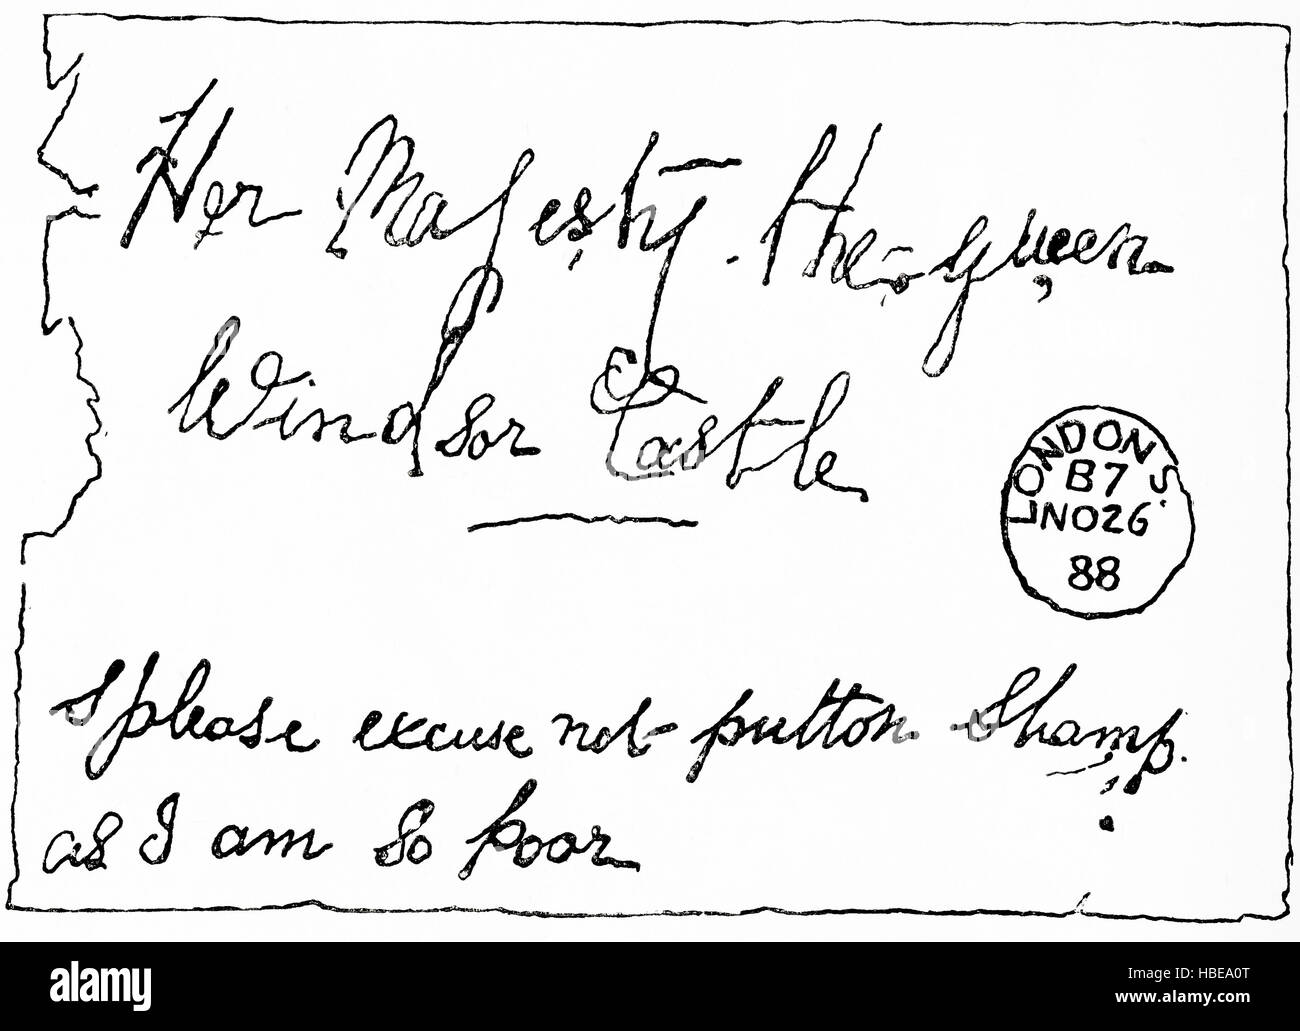 Her Majesty. the queen
Windsor Castle
LONDON S.
B7
NO26
88
please excuse not putton Stamp.
as I am so poor
alamy
Image ID: HBEA0T
www.alamy.com